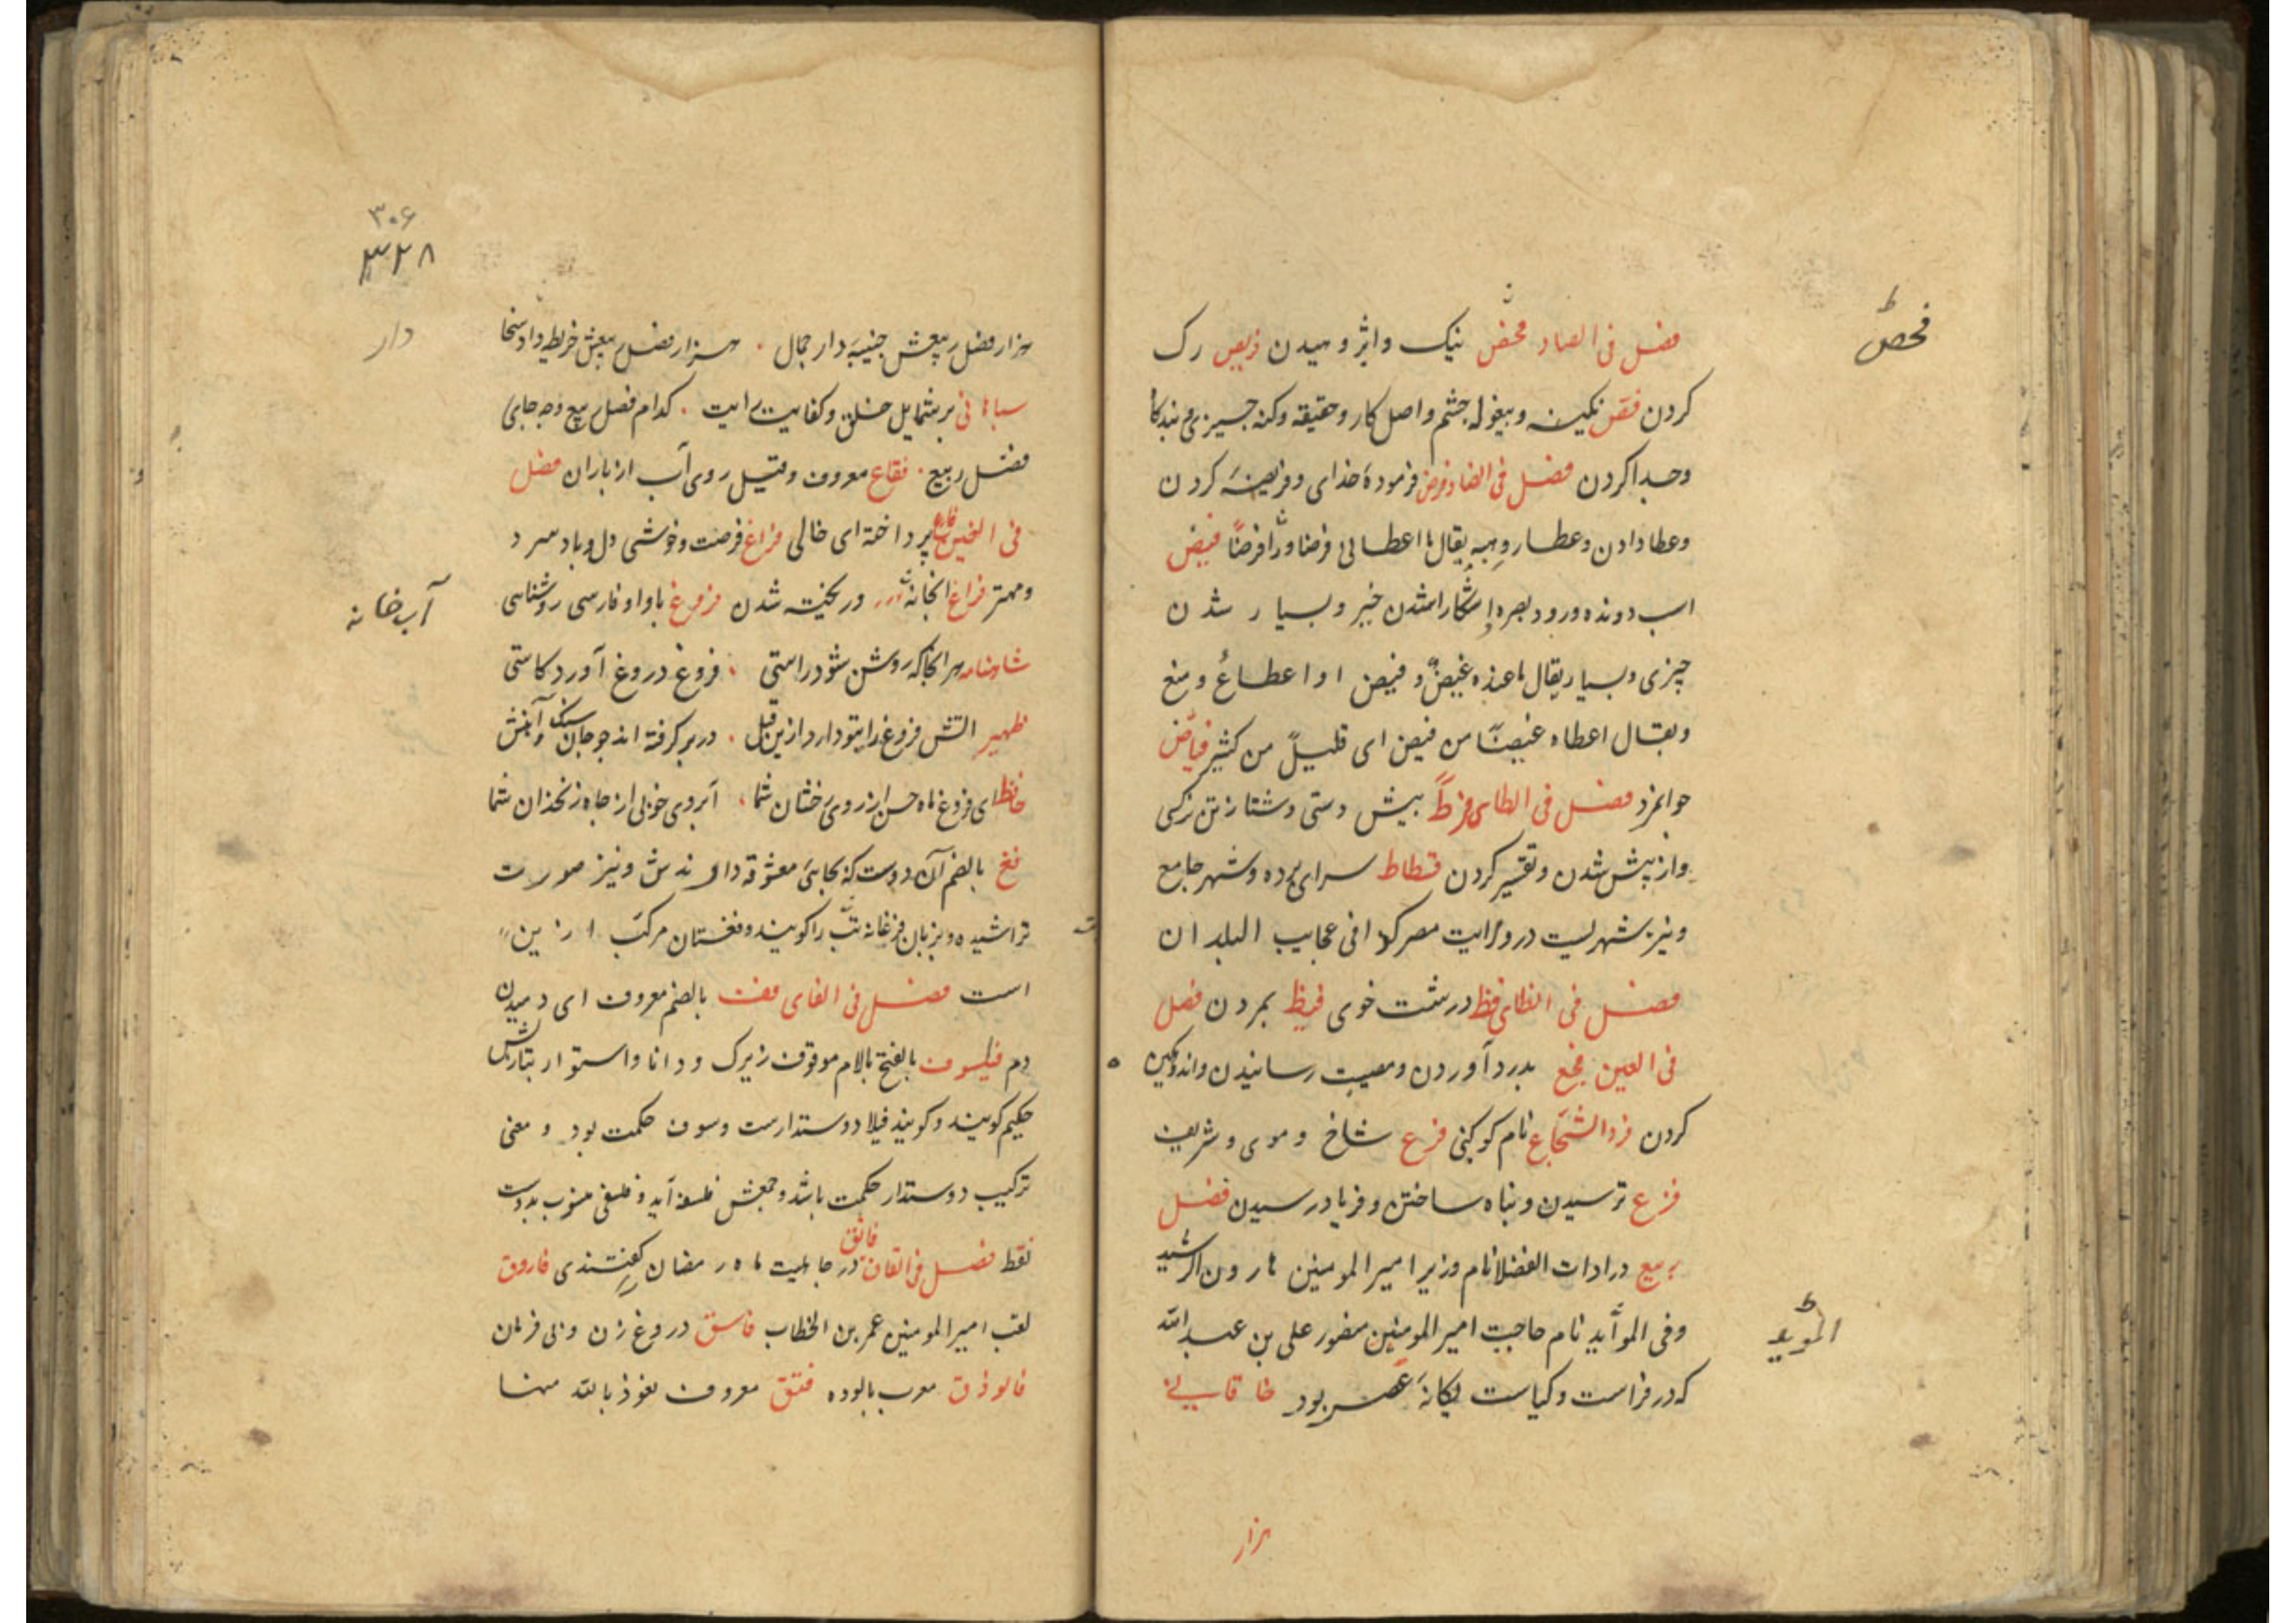 فحص
فصل فی الصاد فحص نیک واپژوهیدن فریص رک
کردن فص نگینه وبیغوله چشم واصل کار وحقیقه وکنه چیزی و بندکا
وجدا کردن فصل فی الضاد فرض فرمودهٔ خدای وفریضهٔ کردن
وعطا دادن وعطا وهبه یقال ما اعطالی فرضا ولا قرضاً فیض
اسب دونده ورود بصره اشکارا شدن خبر وبسیار شدن
چیزی وبسیار یقال ما عنده غیضٌ و فیض او اعطاءٌ ومنع
ویقال اعطاه غیضًا من فیض ای قلیلً من کثیر فیاض
جوانمرد فصل فی الطای فرط پیش دستی وشتا زتن زکی
واز پیش شدن وتقصیر کردن فسطاط سرای پرده وشهر جامع
ونیز شهریست در ولایت مصر کذا فی عجایب البلدان
فصل فی الظای فظ درشت خوی فیظ بمردن فصل
فی العین فجع بدرد آوردن ومصیبت رسانیدن واندوهگین
کردن فرد الشجاع نام کوکبی فرع شاخ وموی وشریف
فزع ترسیدن وپناه ساختن وفریاد رسیدن فضل
ربیع در ادات الفضلا نام وزیر امیر المومنین هارون الرشید
وفی الموأید نام حاجب امیر المومنین منصور علی بن عبد الله
که در فراست وکیاست یگانهٔ عصر بود خاقانی
المؤید
هزار
۳۰۶
۳۲۸
هزار فضل ربیعش جنیبه دار جمال . هزار فضل ربیعش خریطه دار سخا
دار
سباهانی بر شمایل خلق وکفایت رایت . کدام فضل ربیع وچه جای
فضل ربیع . فقاع معروف وقتیل روی آب از باران فصل
فی الغین فارغ پرداخته ای خالی فراغ فرصت وخوشی دل وباد سرد
ومهتر فراغ انجانه وریخته شدن فروغ باواو فارسی روشنائی
آب خانه
شاهنامه هر انجا که روشن شود راستی . فروغ دروغ آورد کاستی
ظهیر اتش فروغ رای تو دارد ازین قبل . در بر گرفته اند چو جان سنگ و آهنش
حافظ ای فروغ ماه حسن از روی رخشان شما . آبروی خوبی از چاه زنخدان شما
فغ بالضم آن دوست که بجای معشوقه دارندش ونیز صورت
تراشیده وبزبان فرغانه بت را گویند وفغستان مرکب ازین
است فصل فی الفای فف بالضم معروف ای دمیدن
دم فیلسوف بالفتح بالام موقوف زیرک ودانا واستوار بتازیش
حکیم گویند وگویند فیلا دوستدارست وسوف حکمت بود ومعنی
ترکیب دوستدار حکمت باشد وجمعش فلسفه آید وفلسفی منسوب بدوست
فقط فصل فی القاف فاتق در جاهلیت ماه رمضان گفتندی فاروق
لقب امیر المومنین عمر بن الخطاب فاسق دروغ زن وبی فرمان
فالوذق معرب بالوده فتق معروف نعوذ بالله منها